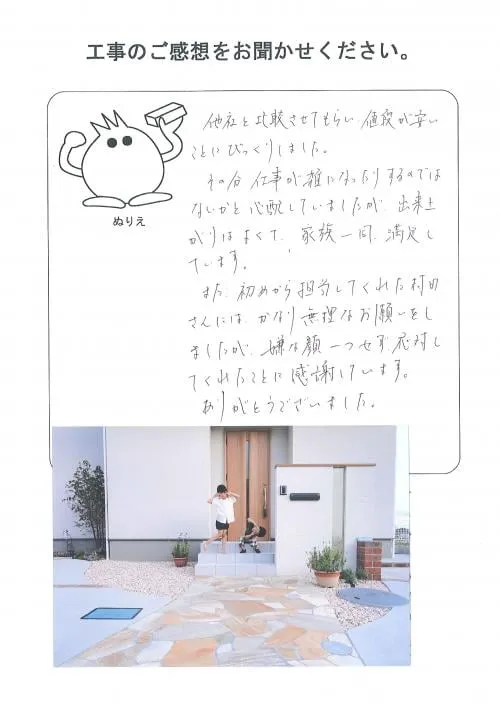 工事のご感想をお聞かせください。
他社と比較させてもらい値段が安い
ことにびっくりしました。
その分仕事が雑になったりするのでは
ないかと心配していましたが、出来上
がりはよくて、家族一同、満足し
ています。
また、初めから担当してくれた村田
さんには、かなり無理なお願いをし
ましたが、嫌な顔一つせず応対し
てくれたことに感謝しています。
ありがとうございました。
ぬりえ